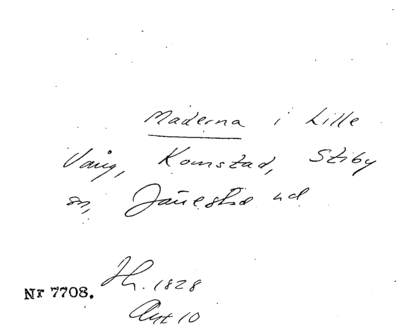 Maderna i Lille
Vång, Komstad, Stiby
sn, Järrestad hd
Nr 7708.
Jh. 1828
Akt 10